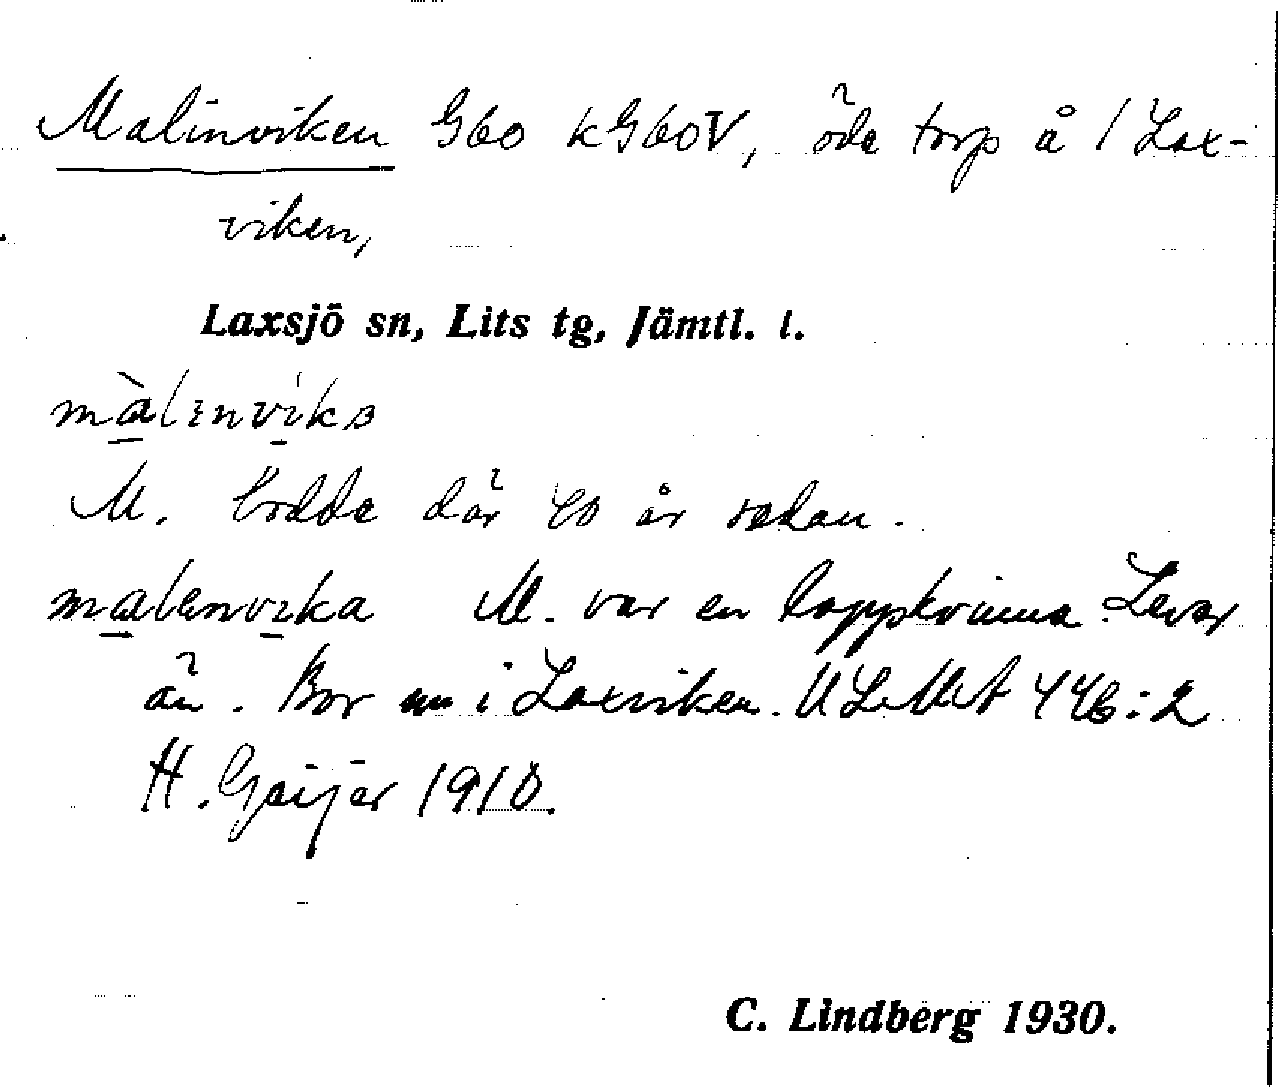 Malinviken G60 kG60V, öde torp å 1 Lax-
viken,
Laxsjö sn, Lits tg, Jämtl. l.
màlinvika
M. bodde där 40 år sedan.
malenvika M. var en lappkvinna. Lever
än. Bor nu i Laxviken. ULMA 446:2
H. Geijer 1910.
C. Lindberg 1930.